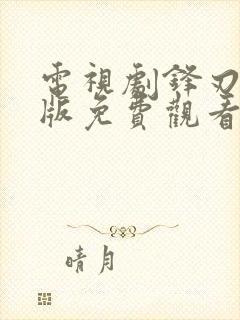 電視劇鋒刃
版免費觀看
晴月